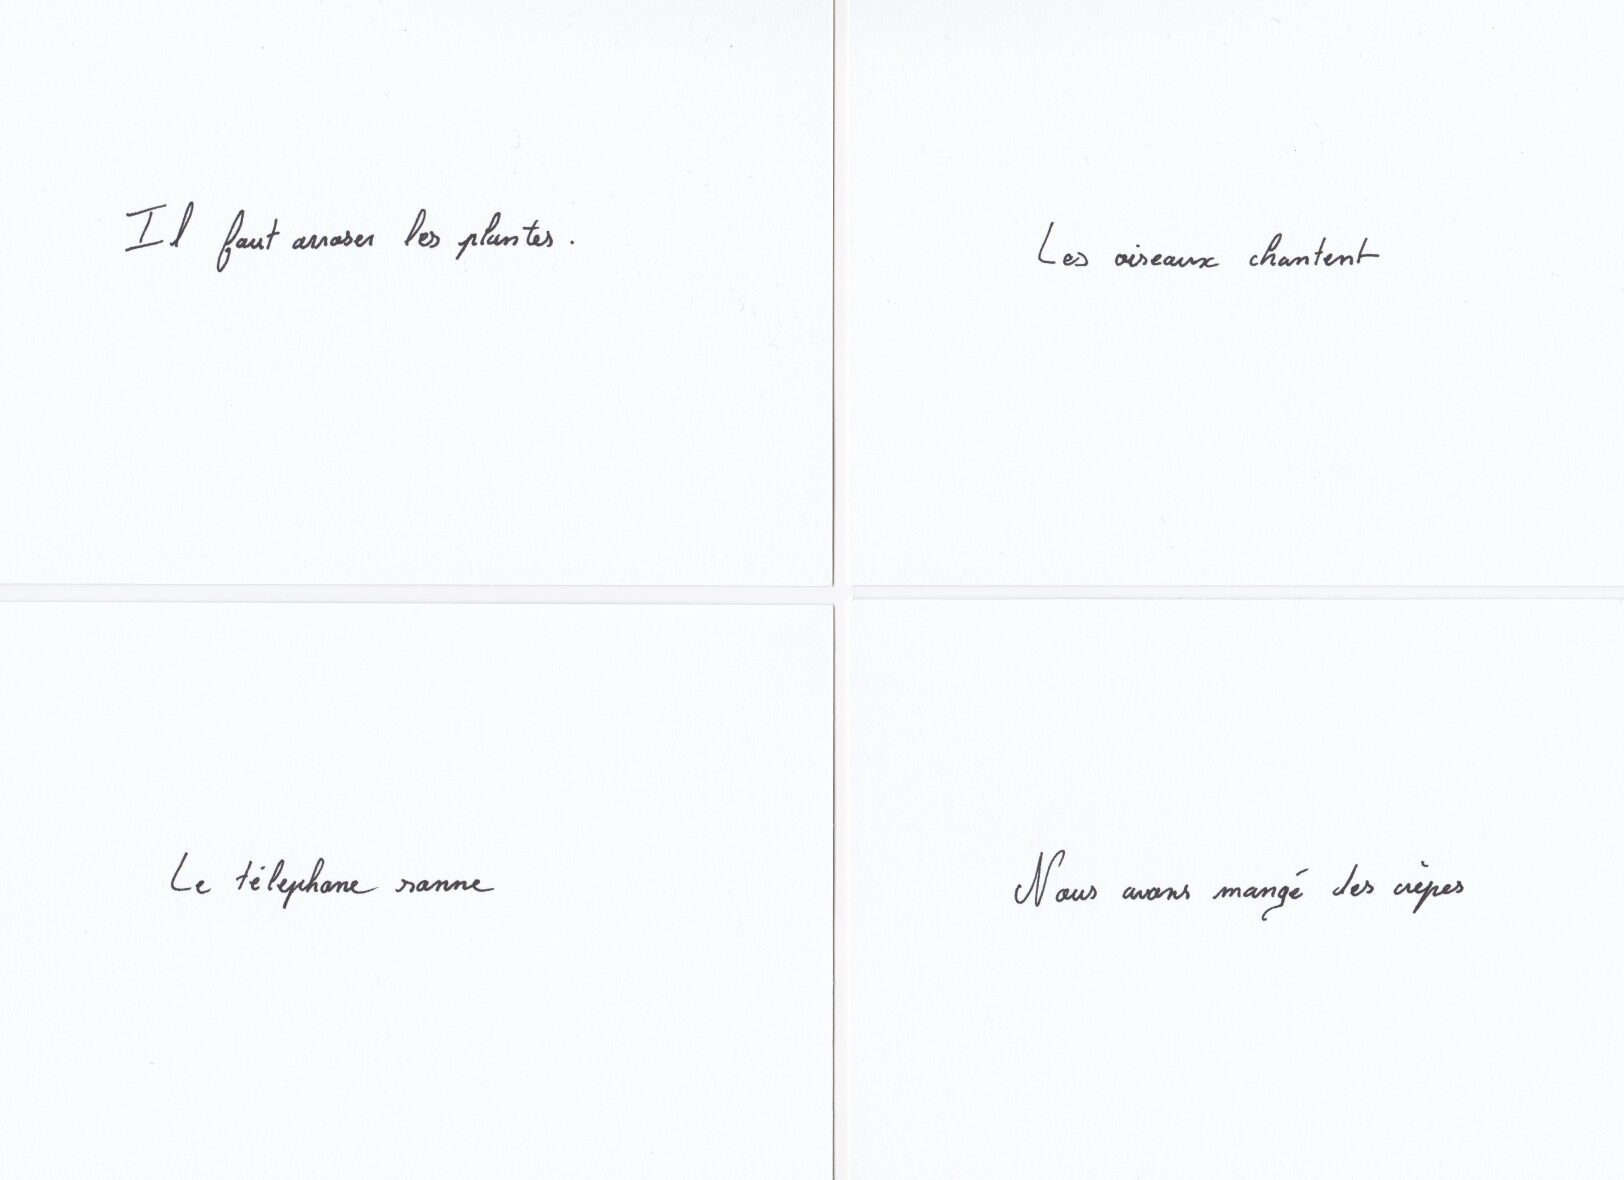 Il faut arroser les plantes.
Les oiseaux chantent
Le téléphone sonne
Nous avons mangé des crêpes